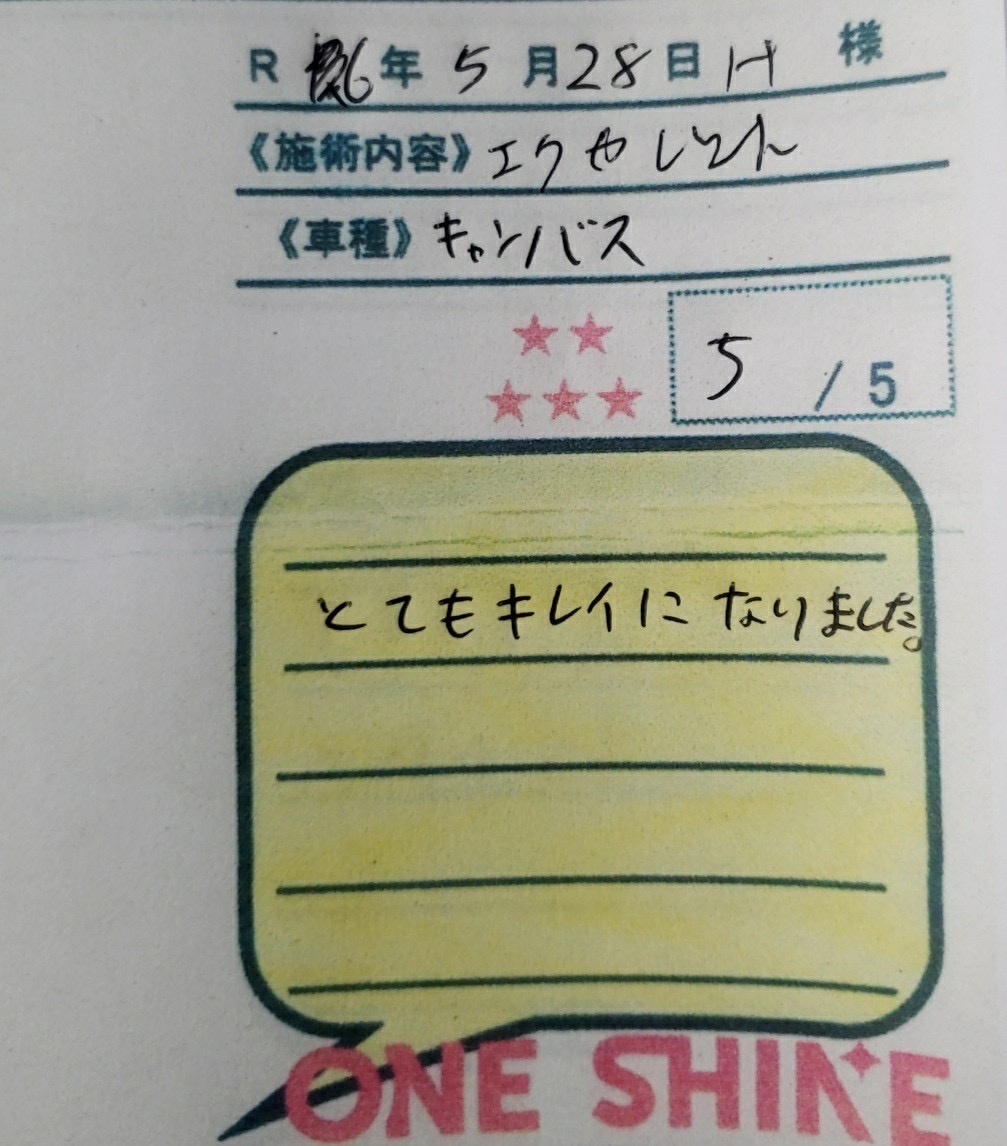 R 6年 5月28日 H 様
《施術内容》
《車種》キャンバス
★★
★★★
5 / 5
とてもキレイになりました。
ONE SHINE